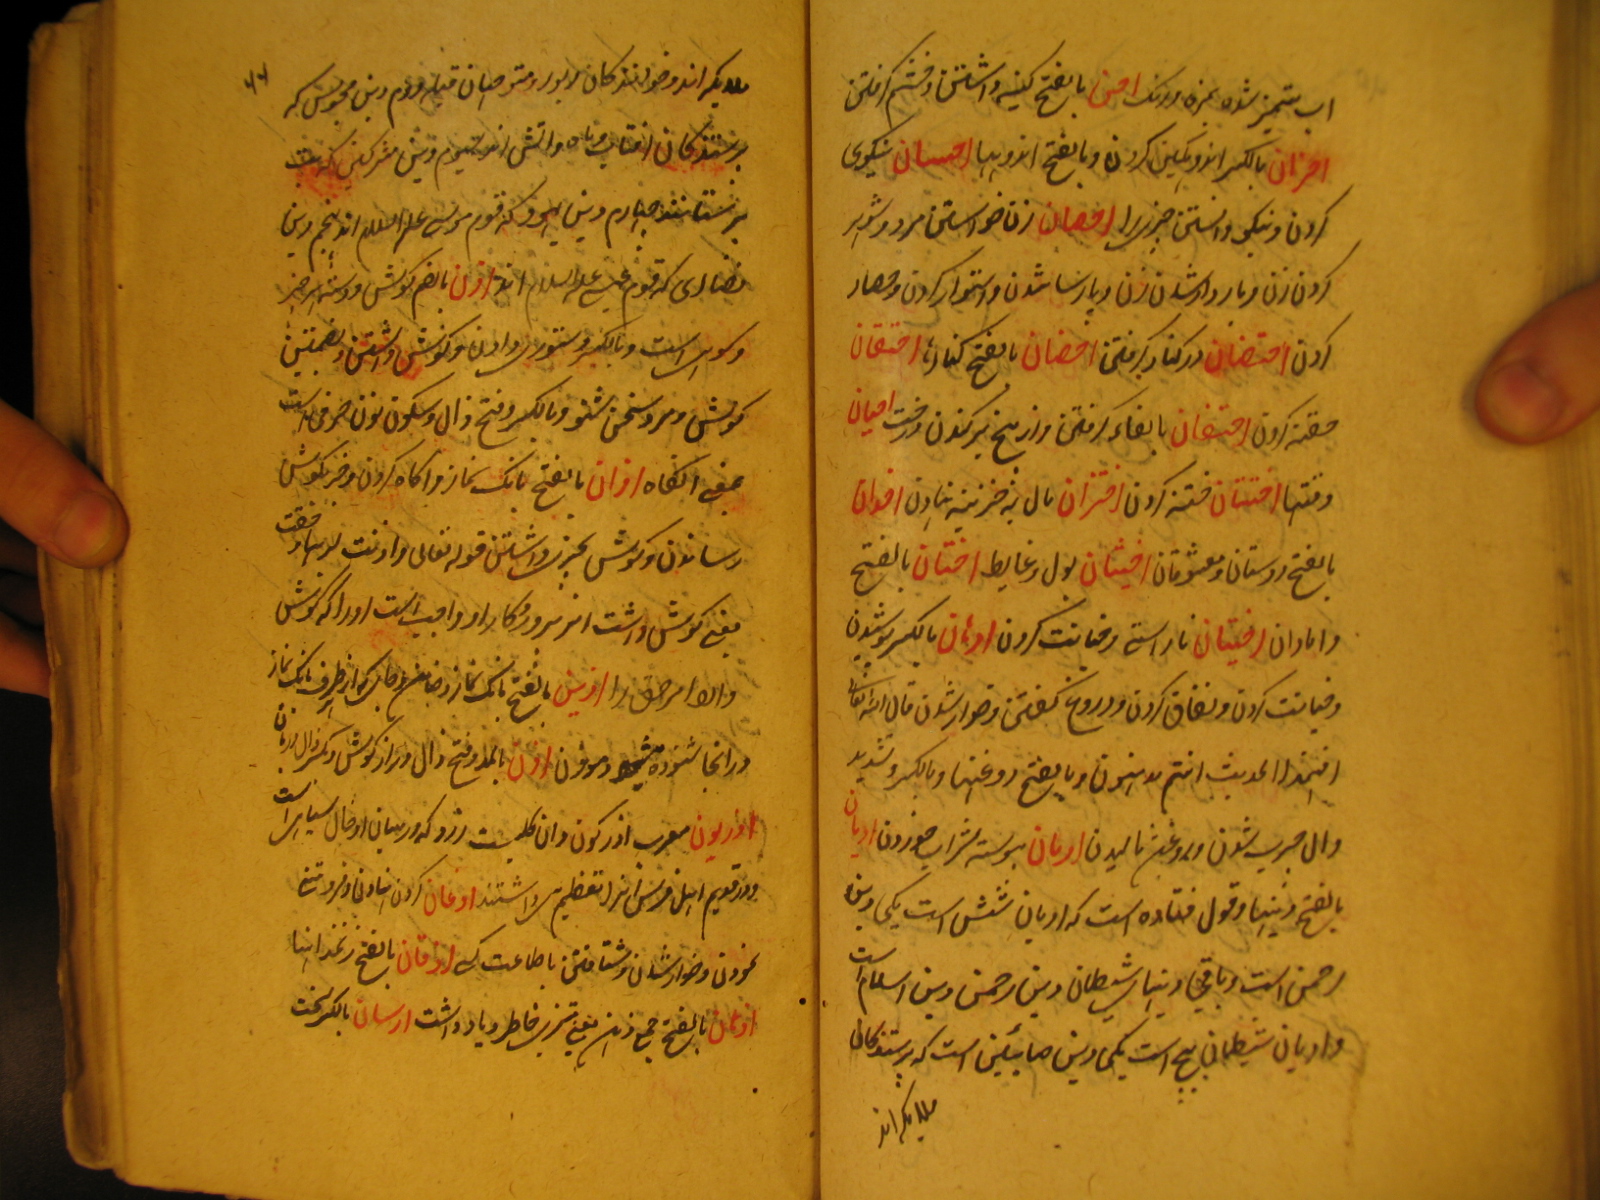 اب متمیز شده بمزه ورنک احن بالفتح کینه داشتن وخشم کرفتن
احزان بالکسر اندوهکین کردن وبالفتح اندوهها احسان نیکوی
کردن ونیکو دانستن چیزی را احصان زن خواستن مرد وشوهر
کردن زن وباردار شدن زن وپارسا شدن واستوار کردن وحصار
کردن احتضان در کنار کرفتن احضان بالفتح کنارها احتقان
حقنه کردن احتفان بالفاء کرفتن واز بیخ برکندن درخت احیان
وقتها اختتان ختنه کردن اختزان مال به خزینه نهادن اخوان
بالفتح دوستان ومعشوقان اخبثان بول وغایط اختان بالفتح
دامادان اختیان ناراستی وخیانت کردن ادهان بالکسر پوشیدن
وخیانت کردن ونفاق کردن ودروغ کفتن وخوار شدن قال الله تعالی
افبهذا الحدیث انتم مدهنون وبالفتح روغنها وبالکسر وتشدید
دال چرب شدن وروغن مالیدن ادمان پیوسته شراب خوردن ادیان
بالفتح دینها وقول قتاده است که ادیان شش است یکی دین
رحمن است وباقی دینهای شیطان دین رحمن دین اسلام است
وادیان شیطان پنج است یکی دین صابئین است که پرستندکان
ملایکه اند
۷۷
ملایکه اند وخوانندکان زبور ومتوجهان قبله دوم دین مجوس که
پرستندکان افتاب وماه واتش اند سیوم دین مشرکین که بت
پرستانند چهارم دین یهود که قوم موسی علیه السلام اند پنجم دین
نصاری که قوم عیسی علیه السلام اند اذن بالضم کوش ودسته هر چیز
وکوی است وبالکسر دستوری دادن وکوش داشتن وبضمتین
کوش ومرد سخن شنو وبالکسر وفتح ذال وسکون نون حرفی است
بمعنی انکاه اذان بالفتح بانک نماز واکاه کردن وخبر بکوش
رسانیدن وکوش بچیزی داشتن قوله تعالی واذنت لربها وحقت
یعنی کوش داشت امر پروردکار او واجب است او را که کوش
دارد امر حق را اذین بالفتح بانک نماز وضامن وجای که از هر طرف بانک نماز
در انجا شنوده شود وموذن اذن بالمد وفتح ذال دراز کوش وبکسر ذال دربان
اذریون معرب اذرکون وان کلیست زرد که در میان او خال سیاهی است
ودر قدیم اهل فرس انرا تعظیم می داشتند اذعان کردن نهادن وفروتنی
نمودن وخوار شدن وشتافتن باطاعت کسی اذقان بالفتح زنخدانها
اذهان بالفتح جمع ذهن یعنی تیزی خاطر ویاد داشت ارسان بالکسر سخت